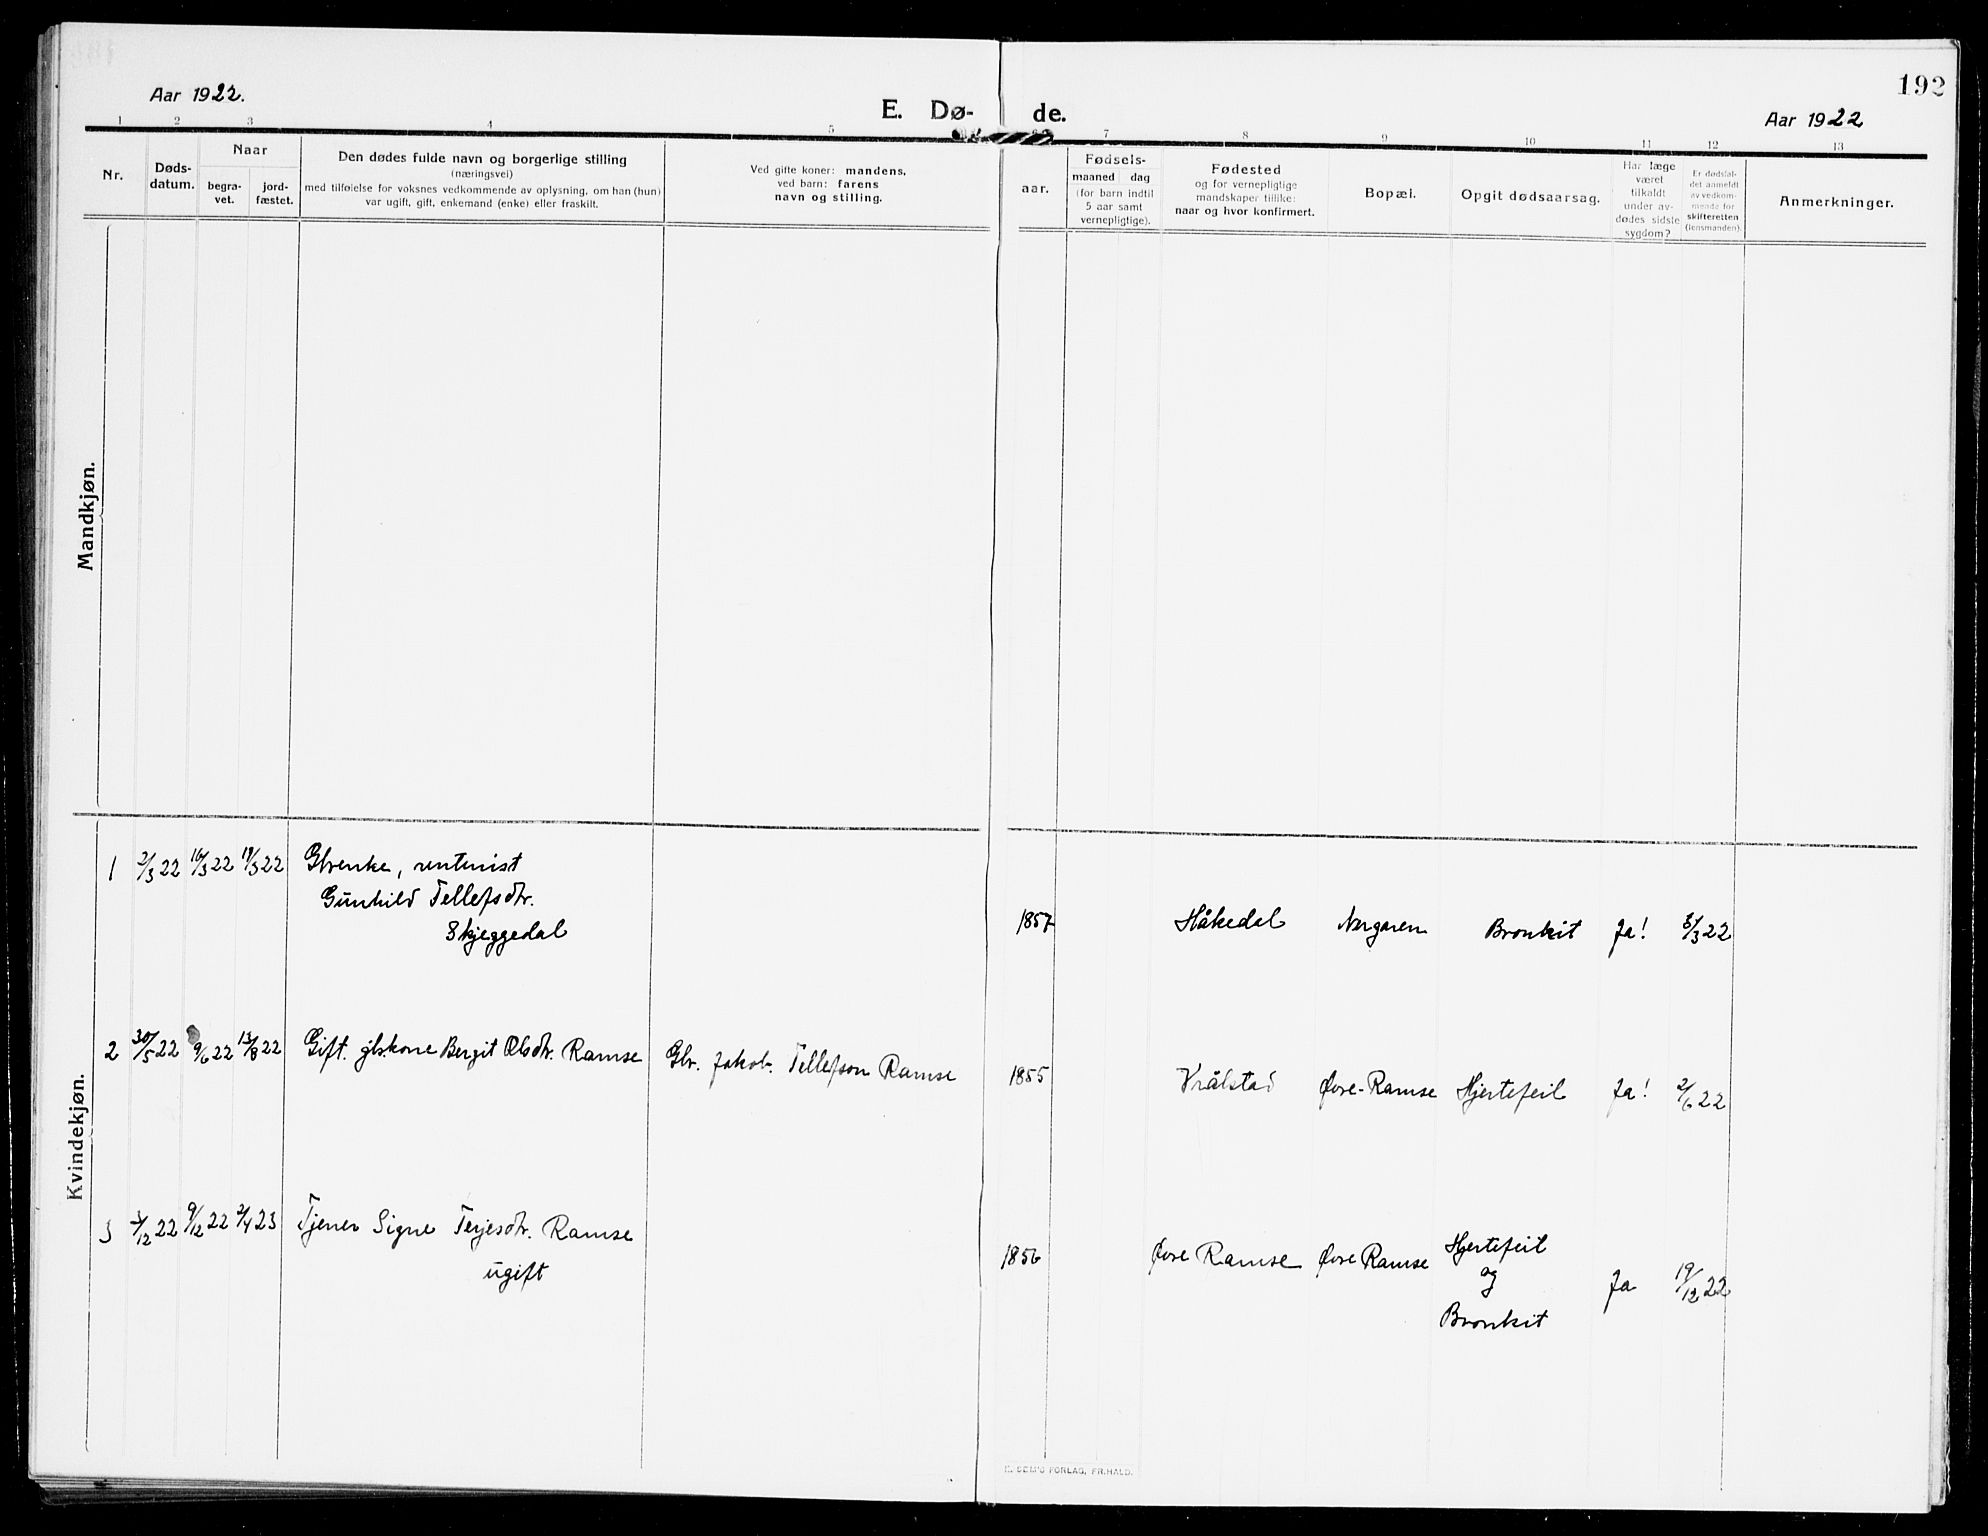 192
Aar 1922.
E. Dø-
de.
Aar 1922
1 2 3 4 5 7 8 9 10 11 12 13
13
Nr.
Døds-
datum.
Naar
begra-
vet.
jord-
fæstet.
Den dødes fulde navn og borgerlige stilling
(næringsvei)
med tilføielse for voksnes vedkommende av oplysning, om han (hun)
var ugift, gift, enkemand (enke) eller fraskilt.
Ved gifte koner: mandens,
ved barn: farens
navn og stilling.
aar.
Fødsels-
maaned dag
(for barn indtil
5 aar samt
vernepligtige).
Fødested
og for vernepligtige
mandskaper tillike:
naar og hvor konfirmert.
Bopæl.
Opgit dødsaarsag.
Har læge
været
tilkaldt
under av-
dødes sidste
sygdom?
Er dødsfal-
det anmeldt
av vedkom-
mende for
skifteretten
(lensmanden).
Anmerkninger.
Mandkjøn.
Kvindekjøn.
1 2/3 22 16/3 22 19/3 22 Gbrenke, rentenist
Gunhild Tellefsdtr.
Skjeggedal
1857 Håkedal Nergaren Bronkit Ja! 3/3 22
2 30/5 22 9/6 22 13/8 22 Gift. gbrkone Bergit Olsdtr. Ramse Gbr. Jakob Tellefson Ramse
1855 Vrålstad Øvre-Ramse Hjertefeil Ja! 2/6 22
3 3/12 22 9/12 22 2/4 23 Tjener Signe Terjesdtr. Ramse
ugift
1856 Øvre Ramse Øvre Ramse Hjertefeil
og
Bronkit
Ja 19/12 22
E. SEM'S FORLAG, FR.HALD.